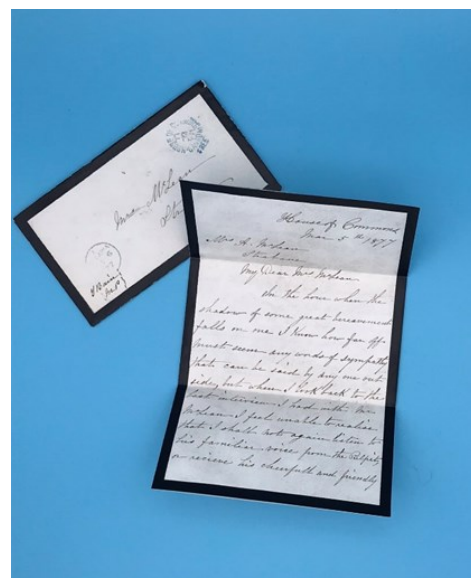 Mrs McLean
House of Commons
Mar 5th 1877
Mrs A. McLean
Strabane
My Dear Mrs McLean
In the hour when the
shadow of some great bereavement
falls on one I know how far off
must seem any words of sympathy
that can be said by any one out
side, but when I look back to the
last interview I had with Mr
McLean I feel unable to realise
that I shall not again listen to
his familiar voice from the Pulpit
or recieve his cheerfull and friendly
T Bain
M.P.
FREE